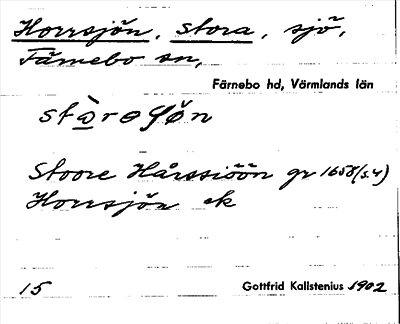 Horrsjön, stora, sjö,
Färnebo sn,
Färnebo hd, Värmlands län
Stoore Hårssiöön gr 1658 (s. 4)
Horrsjön ek
15 Gottfrid Kallstenius 1902